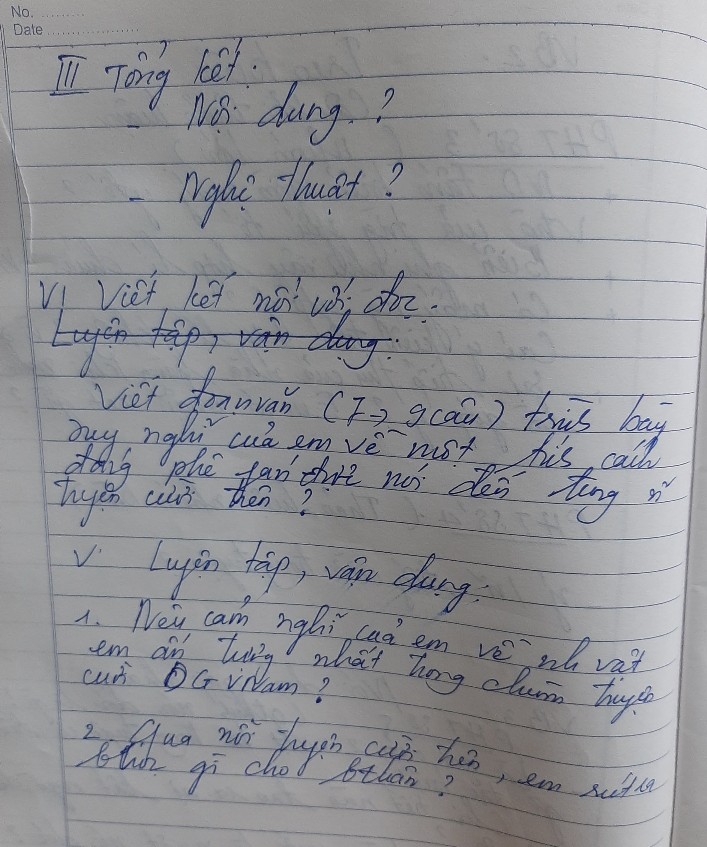 No. ..........
Date ....................
III Tổng kết:
- Nội dung ?
- Nghệ thuật ?
VI Viết kết nối với đọc.
Luyện tập, vận dụng:
Viết đoạn văn (7 -> 9 câu) trình bày
suy nghĩ của em về một cách
đáng phê phán được nói đến trong
truyện cười trên ?
V. Luyện tập, vận dụng:
1. Nêu cảm nghĩ của em về nh vật
em ấn tượng nhất trong chùm truyện
cười DG VNam ?
2. Qua truyện cười trên, em rút ra
bhọc gì cho bthân ?